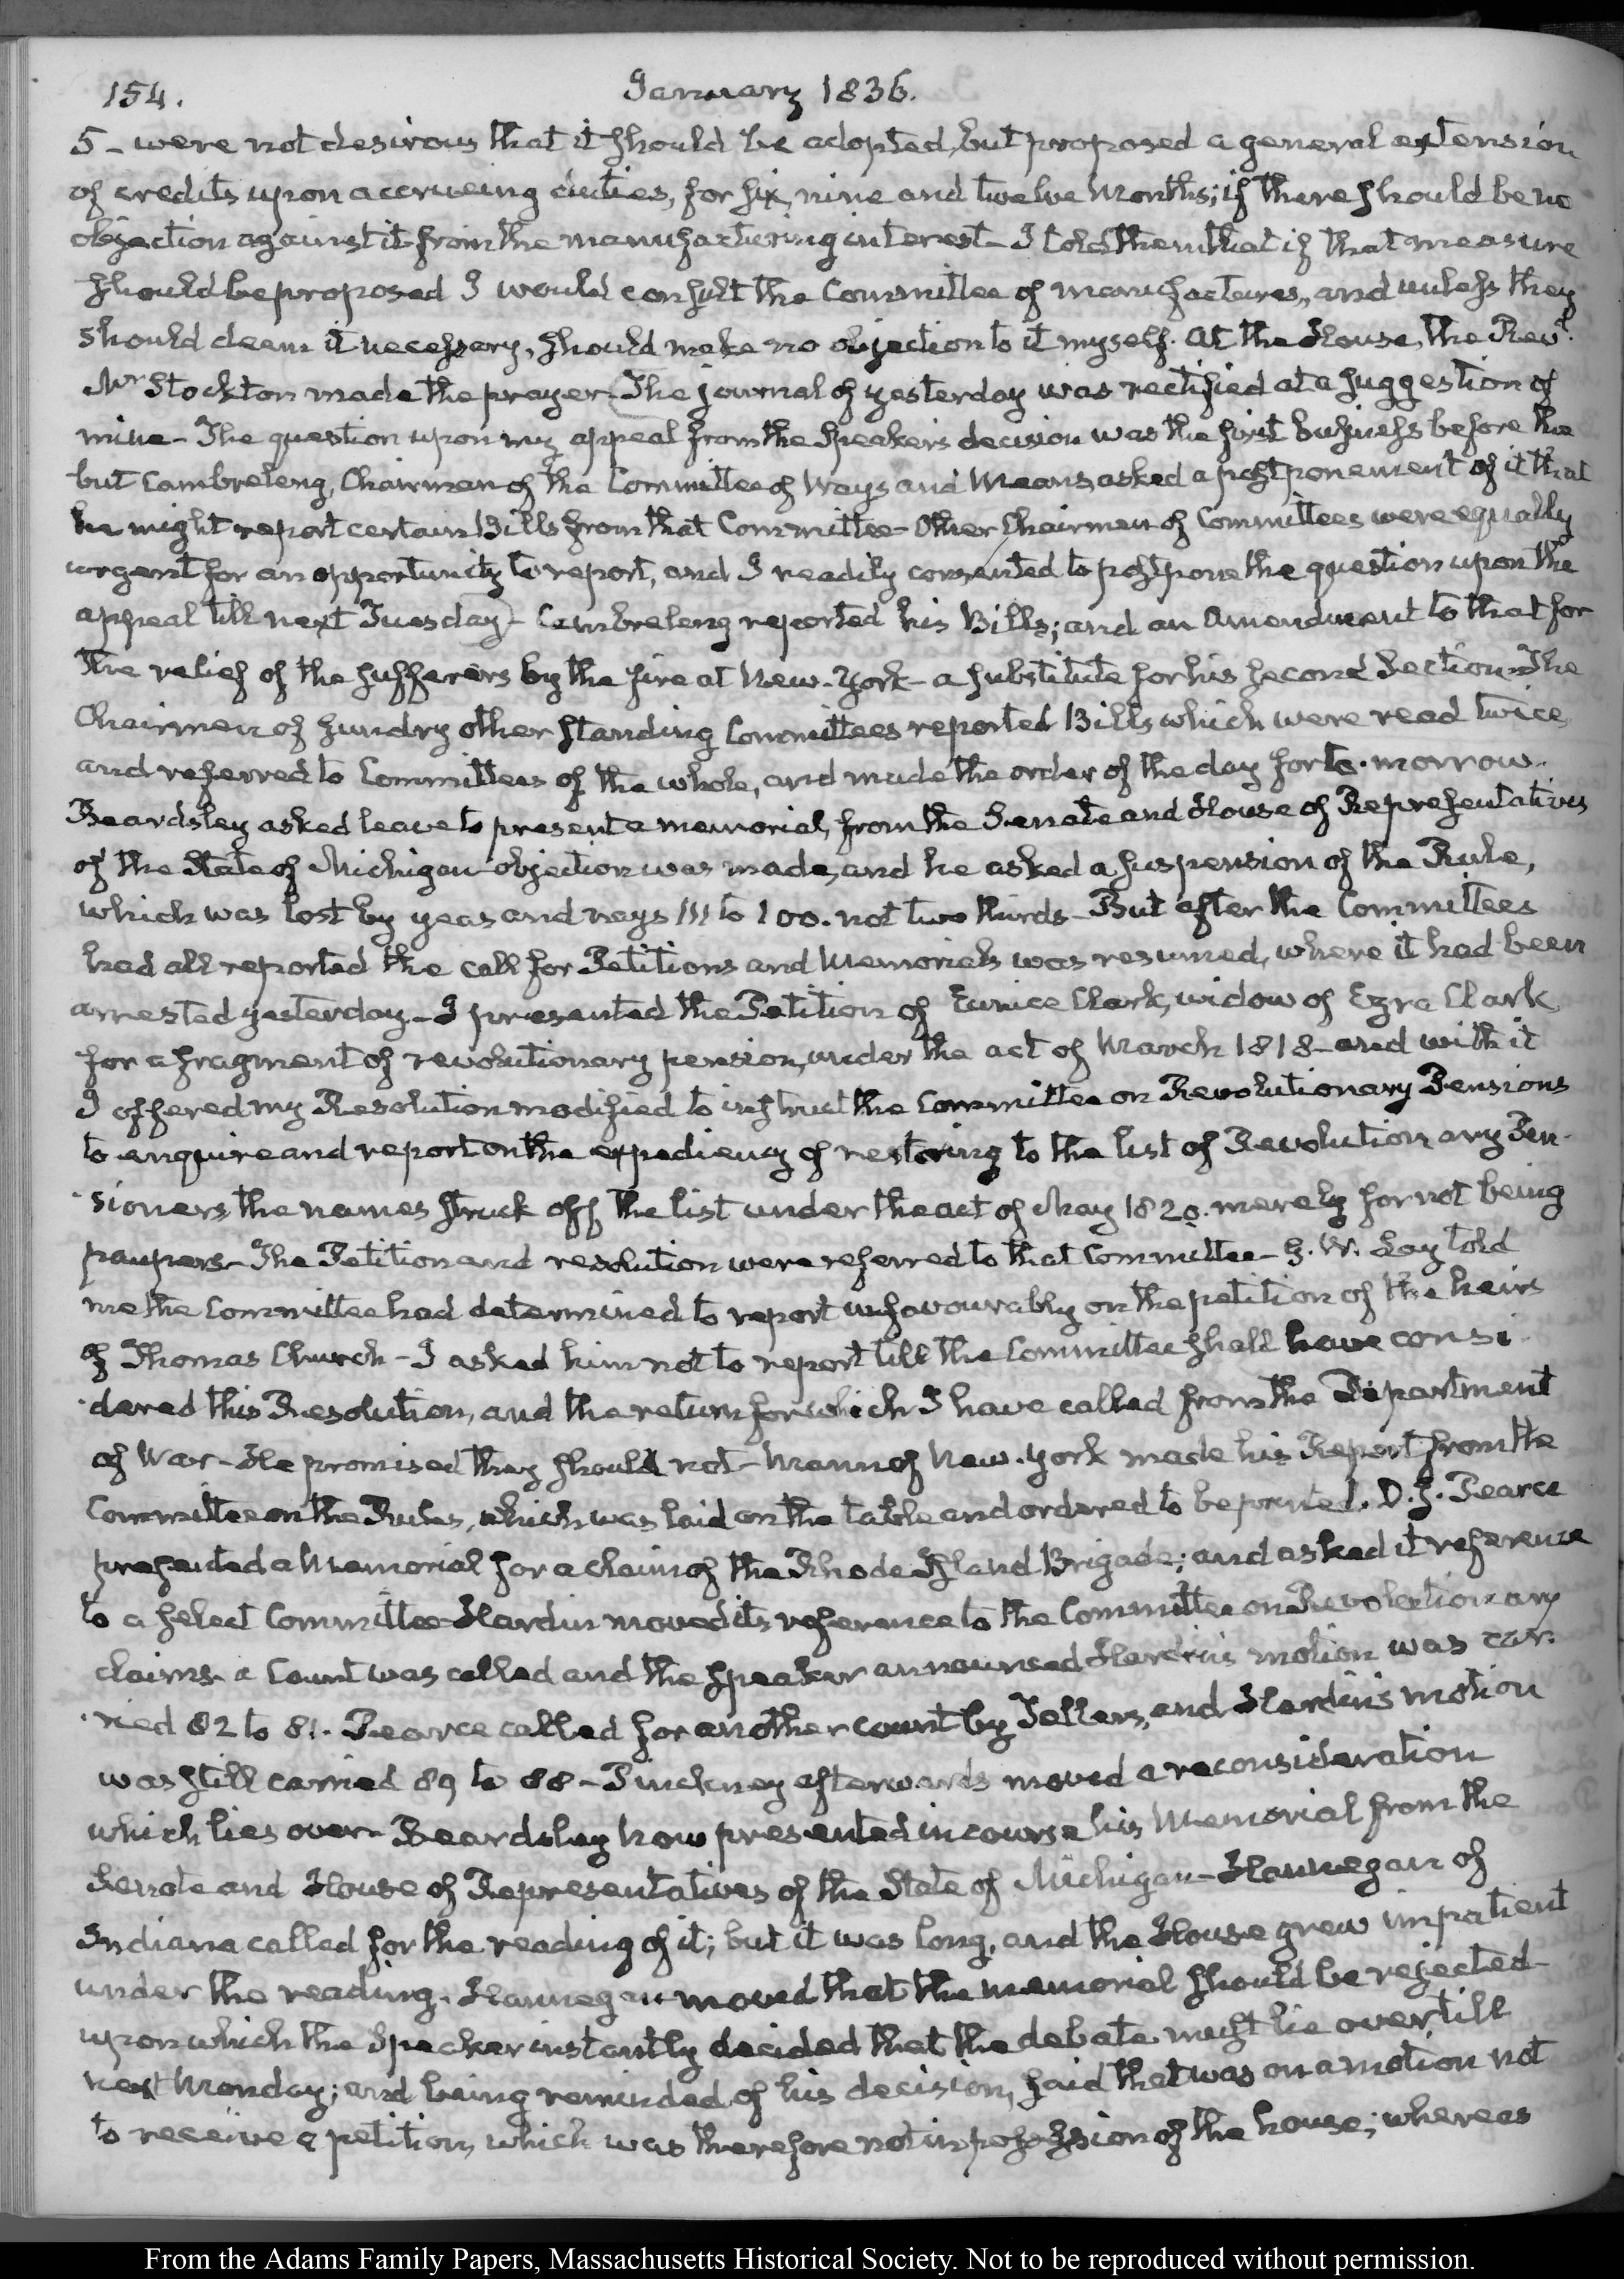 154.
January 1836.
5 - were not desirous that it should be adopted, but proposed a general extension
of credits upon accrueing duties, for six, nine and twelve Months; if there should be no
objection against it from the manufacturing interest - I told them that if that measure
should be proposed I would consult the Committee of manufactures, and unless they
should deem it necessary, should make no objection to it myself. At the House, the Revd.
Mr Stockton made the prayer - The journal of yesterday was rectified at a suggestion of
mine - The question upon my appeal from the Speaker's decision was the first business before the
but Cambreleng, Chairman of the Committee of Ways and Means asked a postponement of it that
he might report certain Bills from that Committee - Other Chairmen of Committees were equally
urgent for an opportunity to report, and I readily consented to postpone the question upon the
appeal till next Tuesday - Cambreleng reported his Bills; and an Amendment to that for
the relief of the sufferers by the fire at New-York - a substitute for his second Section - The
Chairmen of sundry other standing Committees reported Bills which were read twice
and referred to Committees of the whole, and made the order of the day for to-morrow.
Beardsley asked leave to present a memorial, from the Senate and House of Representatives
of the State of Michigan - objection was made, and he asked a suspension of the Rule,
which was lost by yeas and nays 111 to 100. not two thirds - But after the Committees
had all reported the call for Petitions and Memorials was resumed, where it had been
arrested yesterday - I presented the Petition of Eunice Clark, widow of Ezra Clark
for a fragment of revolutionary pension, under the act of March 1818 - and with it
I offered my Resolution modified to instruct the Committee on Revolutionary Pensions
to enquire and report on the expediency of restoring to the list of Revolutionary Pen-
-sioners the names struck off the list under the act of May 1820. merely for not being
paupers - The Petition and resolution were referred to that Committee - G. W. Lay told
me the Committee had determined to report unfavourably on the petition of the heirs
of Thomas Church - I asked him not to report till the Committee shall have consi-
-dered this Resolution, and the return for which I have called from the Department
of War - He promised they should not - Mann of New-York made his Report from the
Committee on the Rules, which was laid on the table and ordered to be printed. D. J. Pearce
presented a Memorial for a claim of the Rhode Island Brigade; and asked it reference
to a select Committee - Hardin moved its reference to the Committee on Revolutionary
claims - a Count was called and the Speaker announced Hardin's motion was car-
-ried 82 to 81. Pearce called for another count by Tellers, and Hardin's motion
was still carried 89 to 88 - Pinckney afterwards moved a reconsideration
which lies over - Beardsley now presented in course his Memorial from the
Senate and House of Representatives of the State of Michigan - Hannegan of
Indiana called for the reading of it; but it was long, and the House grew impatient
under the reading. Hannegan moved that the memorial should be rejected -
upon which the Speaker instantly decided that the debate must lie over till
next Monday; and being reminded of his decision, said that was on a motion not
to receive a petition, which was therefore not in possession of the house; whereas
From the Adams Family Papers, Massachusetts Historical Society. Not to be reproduced without permission.